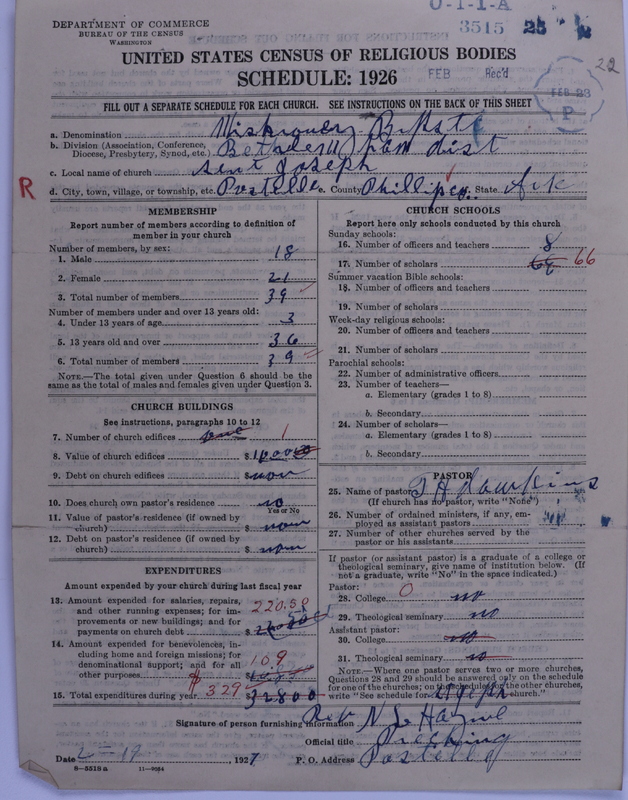 DEPARTMENT OF COMMERCE
BUREAU OF THE CENSUS
WASHINGTON
O-1-1-A
3515 25
UNITED STATES CENSUS OF RELIGIOUS BODIES
SCHEDULE: 1926
FEB Rec'd
FEB 23
P
22
FILL OUT A SEPARATE SCHEDULE FOR EACH CHURCH. SEE INSTRUCTIONS ON THE BACK OF THIS SHEET
a. Denomination
b. Division (Association, Conference, Diocese, Presbytery, Synod, etc.) dist
c. Local name of church Sent Joseph
R
d. City, town, village, or township, etc. Postelle e. County Phillips co. State Ark
MEMBERSHIP
Report number of members according to definition of member in your church
Number of members, by sex:
1. Male 18
2. Female 21
3. Total number of members 39
Number of members under and over 13 years old:
4. Under 13 years of age 3
5. 13 years old and over 36
6. Total number of members 39
NOTE.—The total given under Question 6 should be the same as the total of males and females given under Question 3.
CHURCH BUILDINGS
See instructions, paragraphs 10 to 12
7. Number of church edifices one 1
8. Value of church edifices $
9. Debt on church edifices $ non
10. Does church own pastor's residence no
Yes or No
11. Value of pastor's residence (if owned by church) $ non
12. Debt on pastor's residence (if owned by church) $ non
EXPENDITURES
Amount expended by your church during last fiscal year
13. Amount expended for salaries, repairs, and other running expenses; for improvements or new buildings; and for payments on church debt $ 220.50
14. Amount expended for benevolences, including home and foreign missions; for denominational support; and for all other purposes $ 109
15. Total expenditures during year $ 329 32800
CHURCH SCHOOLS
Report here only schools conducted by this church
Sunday schools:
16. Number of officers and teachers 8
17. Number of scholars 66
Summer vacation Bible schools:
18. Number of officers and teachers
19. Number of scholars
Week-day religious schools:
20. Number of officers and teachers
21. Number of scholars
Parochial schools:
22. Number of administrative officers
23. Number of teachers—
a. Elementary (grades 1 to 8)
b. Secondary
24. Number of scholars—
a. Elementary (grades 1 to 8)
b. Secondary
PASTOR
25. Name of pastor
(If church has no pastor, write "None")
26. Number of ordained ministers, if any, employed as assistant pastors
27. Number of other churches served by the pastor or his assistants
If pastor (or assistant pastor) is a graduate of a college or theological seminary, give name of institution below. (If not a graduate, write "No" in the space indicated.)
Pastor: 0
28. College no
29. Theological seminary no
Assistant pastor:
30. College no
31. Theological seminary no
NOTE.—Where one pastor serves two or more churches, Questions 28 and 29 should be answered only on the schedule for one of the churches; on the schedules for the other churches, write "See schedule for church."
Signature of person furnishing information Rev
Official title Preching
Date 2-19, 1927 P. O. Address Postelle
8-5518 a 11-9054